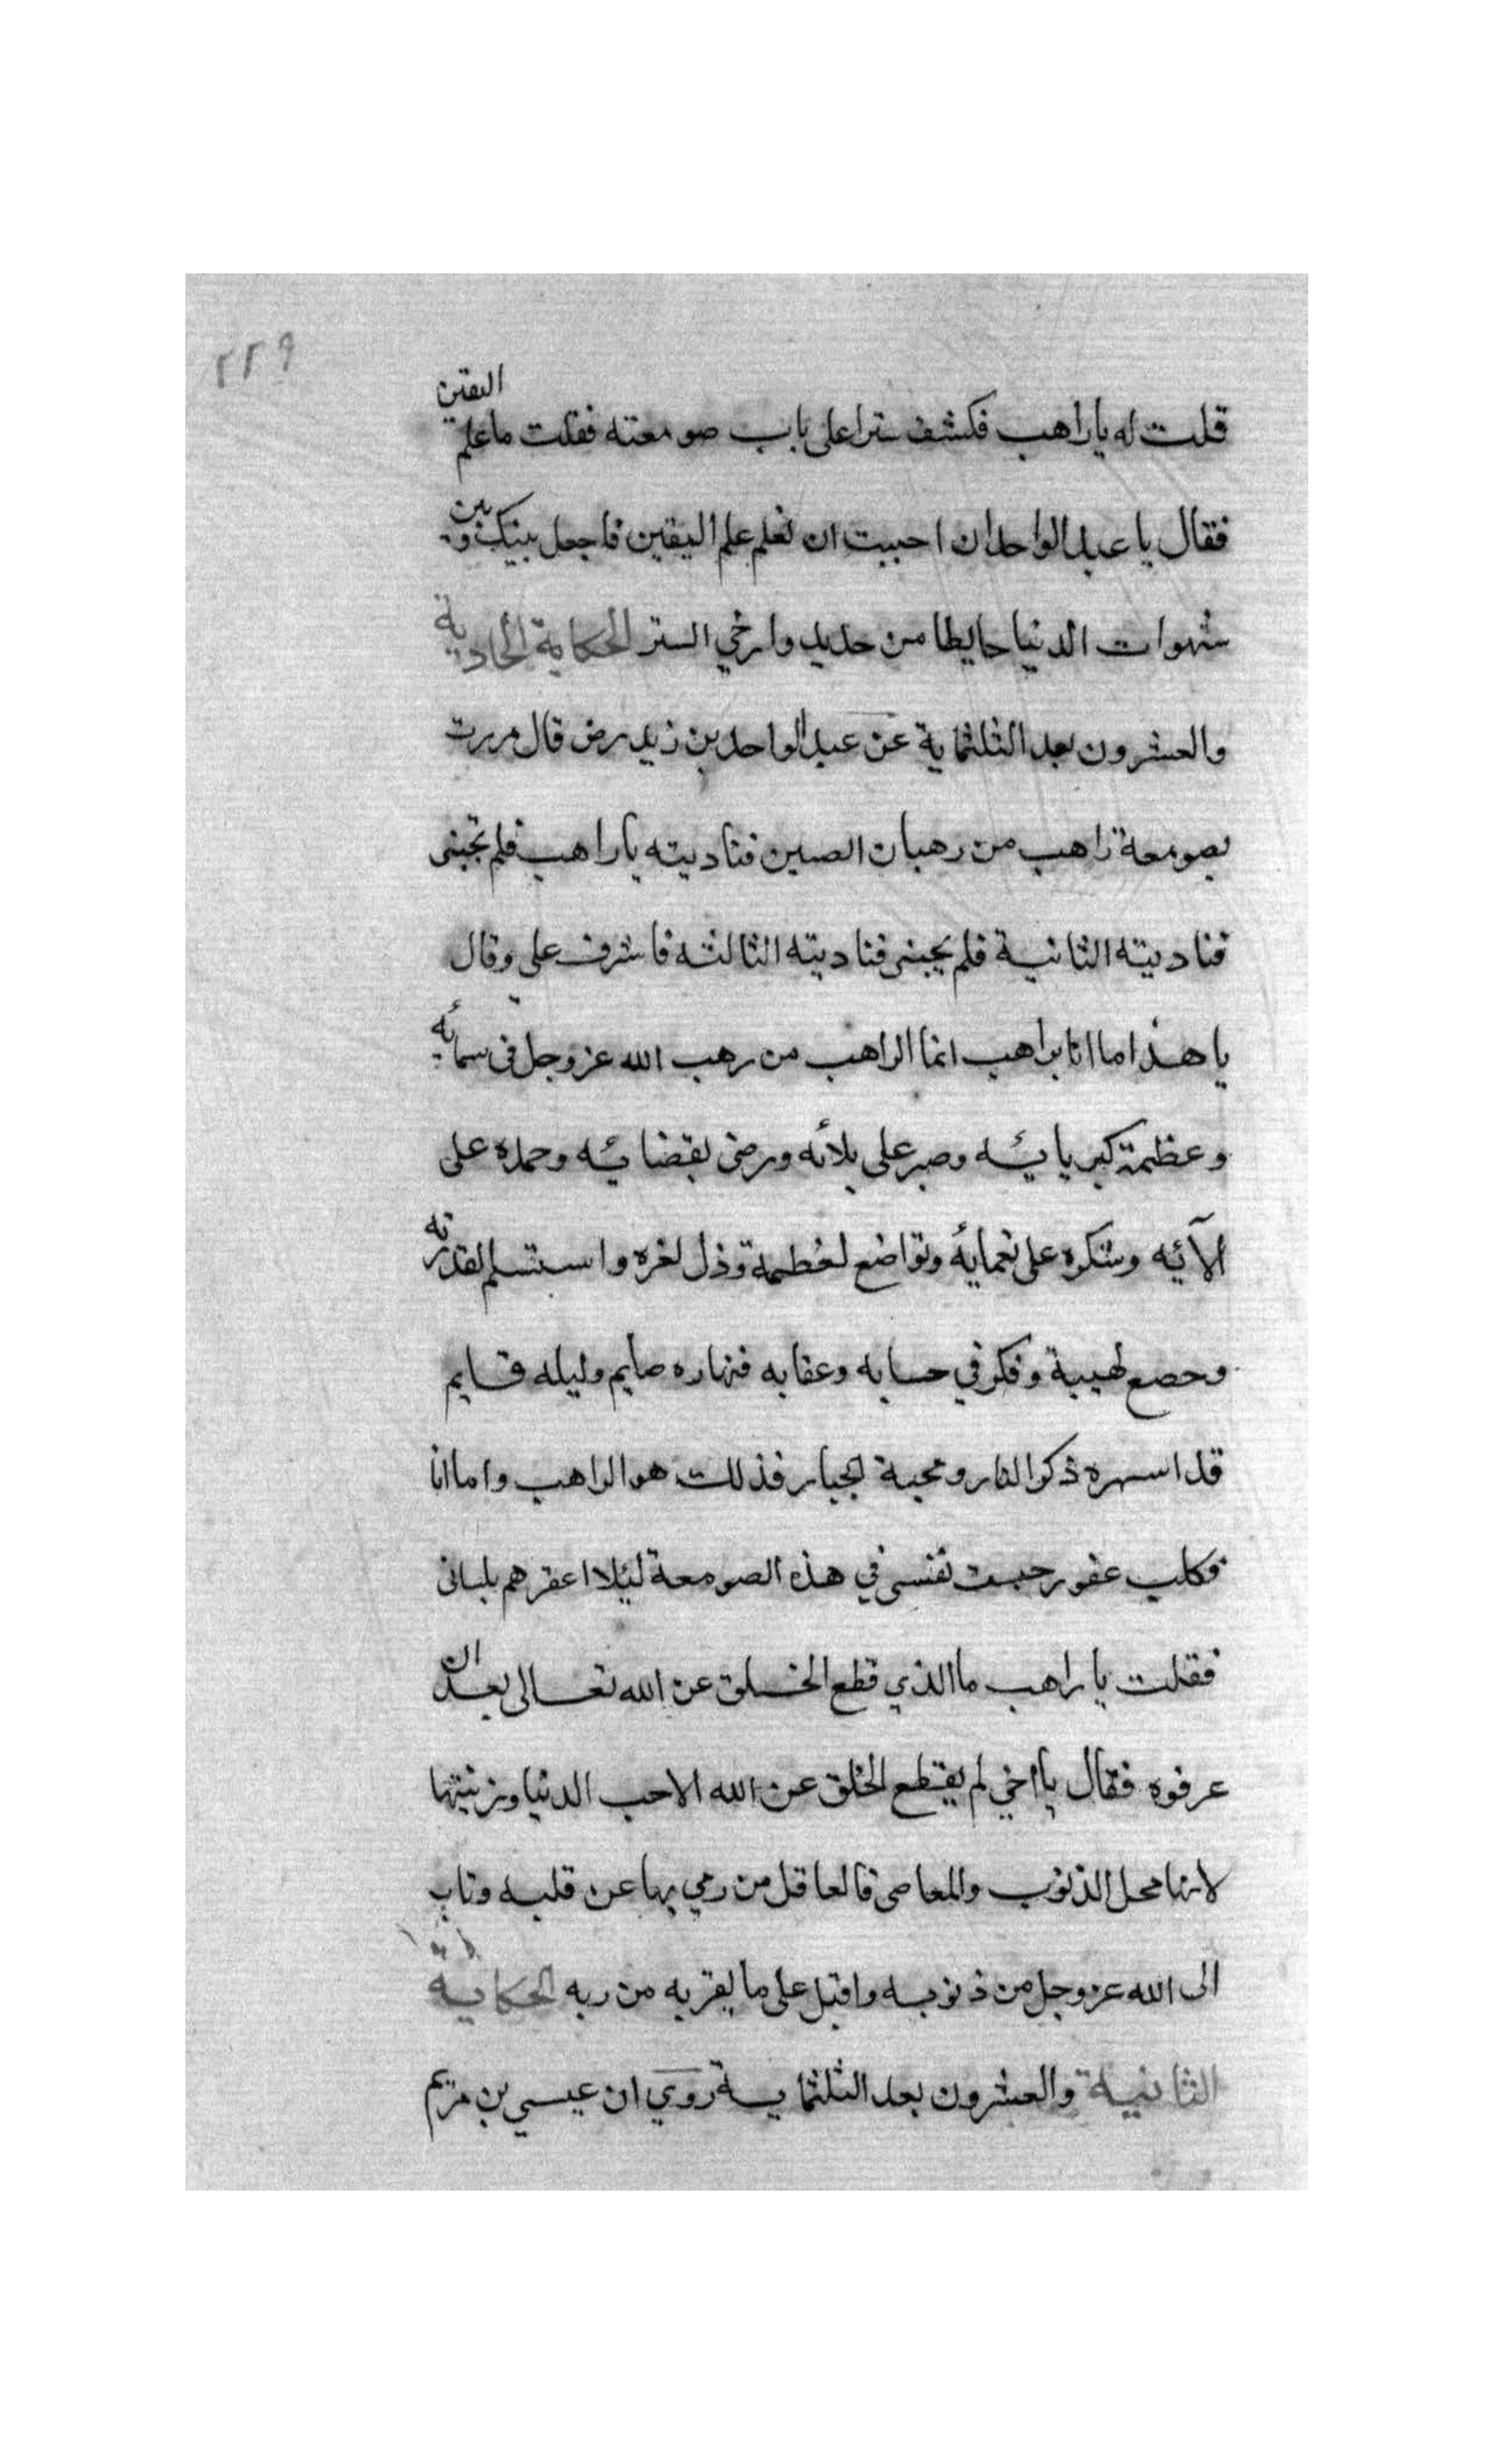 ٢٢٩
قلت له ياراهب فكشف سترا على باب صومعته فقلت ما علم اليقين
فقال يا عبد الواحد ان احببت ان تعلم علم اليقين فاجعل بينك وبين
شهوات الدنيا حايطا من حديد وارخي الستر الحكاية الحادية
والعشرون بعد الثلثماية عن عبد الواحد بن زيد رض قال مررت
بصومعة راهب من رهبان الصين فناديته ياراهب فلم يجبنى
فناديته الثانية فلم يجبنى فناديته الثالثه فاشرف علي وقال
يا هذا ما انا براهب انما الراهب من رهب الله عز وجل فى سمائه
وعظمة كبريائه وصبر على بلائه ورضى بقضائه وحمده على
آلآئيه وشكره على نعمايه وتواضع لعظمة وذل لغره واستسلم لقدرته
وحصع لهيبة وفكر في حسابه وعقابه فنهاره صايم وليله قايم
قد اسهره ذكر النار ومحبة الجبار فذلك هو الراهب واما انا
فكلب عقور حبست نفسى في هذه الصومعة ليئلا اعقرهم بلسانى
فقلت يا راهب ما الذي قطع الخلق عن الله تعالى بعد ان
عرفوه فقال يا اخي لم يقطع الخلق عن الله الا حب الدنيا وزنيتها
لانها محل الذنوب والمعاصى فالعاقل من رمي بها عن قلبه وتاب
الى الله عز وجل من ذنوبه واقبل على ما يقربه من ربه الحكاية
الثانية والعشرون بعد الثلثماية روي ان عيسي بن مريم